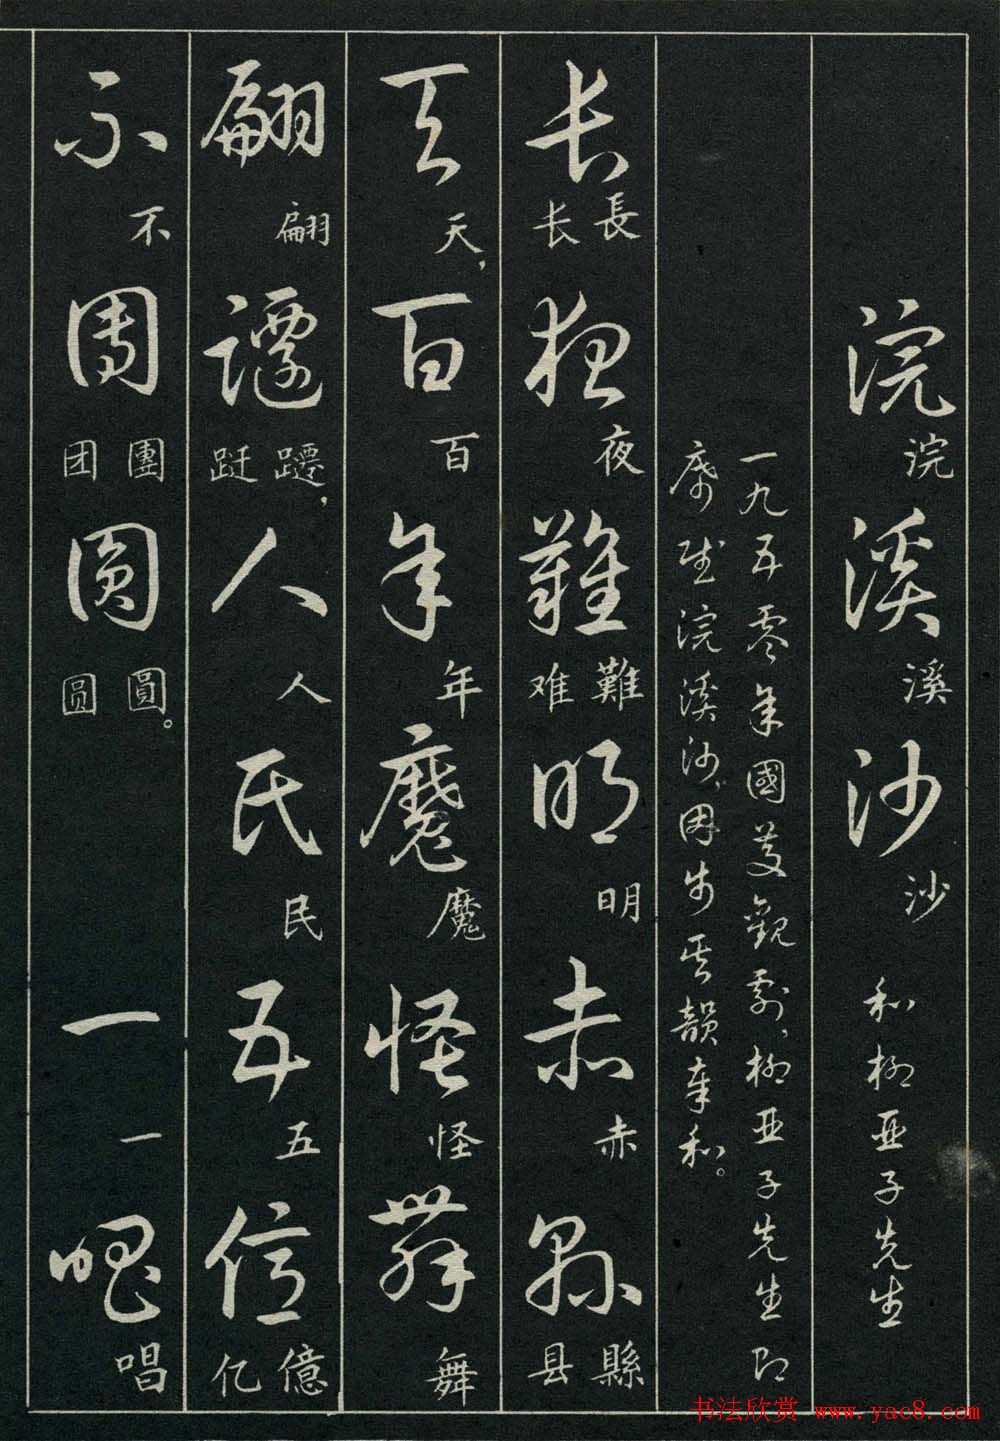 浣浣溪溪沙沙 和柳亞子先生
一九五零年國慶觀劇，柳亞子先生即
席賦浣溪沙，因步其韻奉和。
长長长夜夜難難难明明赤赤縣縣县
天天，百百年年魔魔怪怪舞舞
翩翩躚躚跹，人人民民五五億億亿
不不團團团圓圓圆。一一唱唱
书法欣赏 www.yac8.com